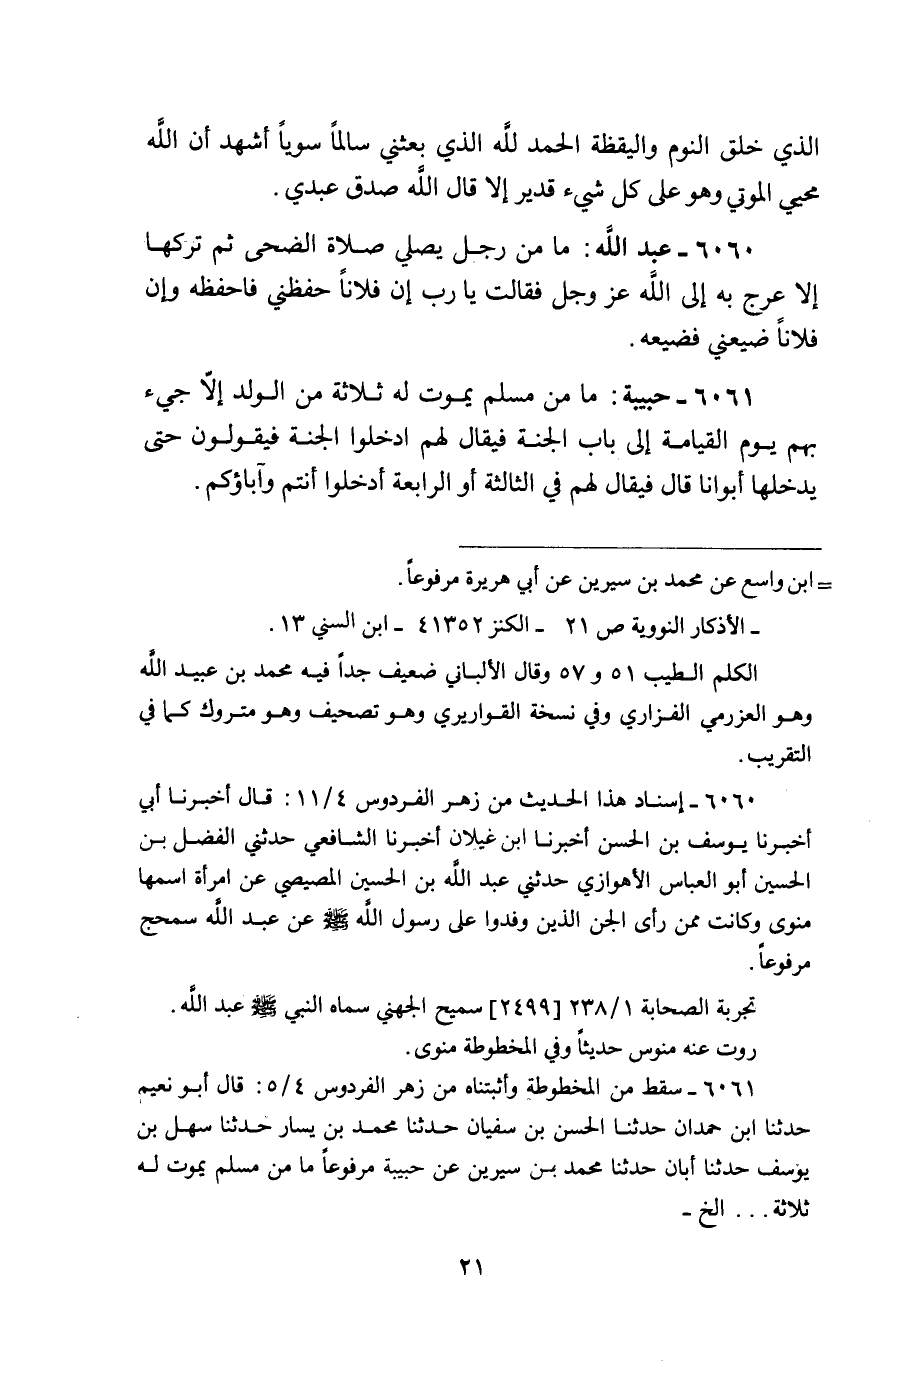 الذي خلق النوم واليقظة الحمد للَّه الذي بعثني سالماً سوياً أشهد أن اللَّه
محيي الموتي وهو على كل شيء قدير إلا قال اللَّه صدق عبدي .
٦٠٦٠ ـ عبد اللَّه : ما من رجل يصلي صلاة الضحى ثم تركها
إلا عرج به إلى اللَّه عز وجل فقالت يا رب إن فلاناً حفظني فاحفظه وإن
فلاناً ضيعني فضيعه .
٦٠٦١ ـ حبيبة : ما من مسلم يموت له ثلاثة من الولد إلّا جيء
بهم يوم القيامة إلى باب الجنة فيقال لهم ادخلوا الجنة فيقولون حتى
يدخلها أبوانا قال فيقال لهم في الثالثة أو الرابعة أدخلوا أنتم وآباؤكم .
= ابن واسع عن محمد بن سيرين عن أبي هريرة مرفوعاً .
ـ الأذكار النووية ص ٢١ ـ الكنز ٤١٣٥٢ ـ ابن السني ١٣ .
الكلم الطيب ٥١ و ٥٧ وقال الألباني ضعيف جداً فيه محمد بن عبيد اللَّه
وهو العزرمي الفزاري وفي نسخة القواريري وهو تصحيف وهو متروك كما في
التقريب .
٦٠٦٠ ـ إسناد هذا الحديث من زهر الفردوس ١١/٤ : قال أخبرنا أبي
أخبرنا يوسف بن الحسن أخبرنا ابن غيلان أخبرنا الشافعي حدثني الفضل بن
الحسين أبو العباس الأهوازي حدثني عبد اللَّه بن الحسين المصيصي عن امرأة اسمها
منوى وكانت ممن رأى الجن الذين وفدوا على رسول اللَّه ﷺ عن عبد اللَّه سمحج
مرفوعاً .
تجربة الصحابة ٢٣٨/١ [٢٤٩٩] سميح الجهني سماه النبي ﷺ عبد اللَّه .
روت عنه منوس حديثاً وفي المخطوطة منوى .
٦٠٦١ ـ سقط من المخطوطة وأثبتناه من زهر الفردوس ٥/٤ : قال أبو نعيم
حدثنا ابن حمدان حدثنا الحسن بن سفيان حدثنا محمد بن يسار حدثنا سهل بن
يوسف حدثنا أبان حدثنا محمد بن سيرين عن حبيبة مرفوعاً ما من مسلم يموت له
ثلاثة . . . الخ ـ
٢١